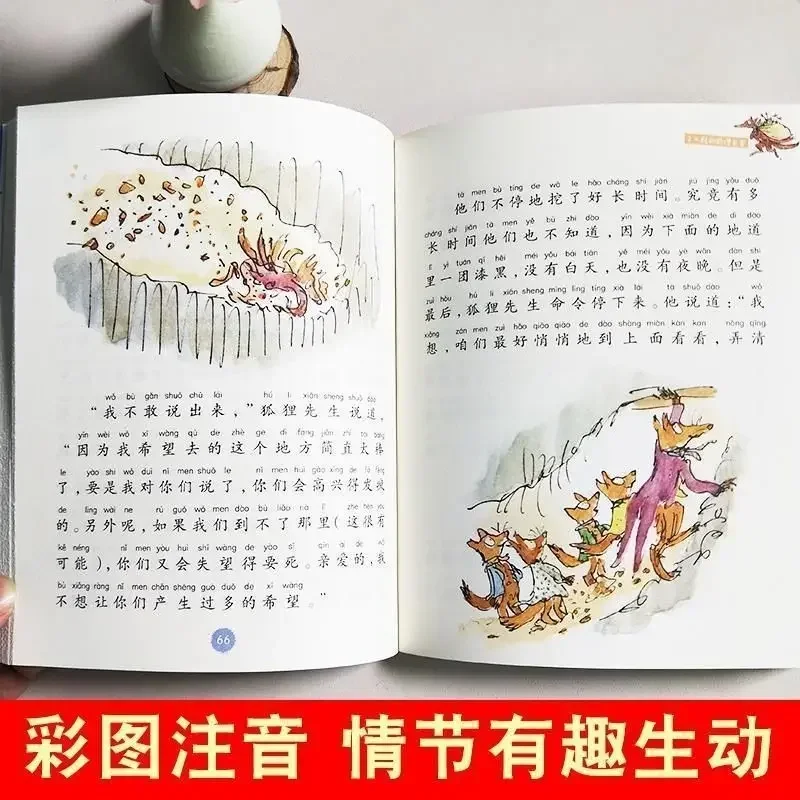 wǒ bù gǎn shuō chū lái hú li xiān sheng shuō dào
“我不敢说出来，”狐狸先生说道，
yīn wèi wǒ xī wàng qù de zhè ge dì fang jiǎn zhí tài bàng
“因为我希望去的这个地方简直太棒
le yào shi wǒ duì nǐ men shuō le nǐ men huì gāo xìng de fā fēng
了，要是我对你们说了，你们会高兴得发疯
de lìng wài ne rú guǒ wǒ men dào bù liǎo nà lǐ zhè hěn yǒu
的。另外呢，如果我们到不了那里（这很有
kě néng nǐ men yòu huì shī wàng de yào sǐ qīn ài de wǒ
可能），你们又会失望得要死。亲爱的，我
bù xiǎng ràng nǐ men chǎn shēng guò duō de xī wàng
不想让你们产生过多的希望。”
66
tā men bù tíng de wā le hǎo cháng shí jiān jiū jìng yǒu duō
他们不停地挖了好长时间。究竟有多
cháng shí jiān tā men yě bù zhī dào yīn wèi xià miàn de dì dào
长时间他们也不知道，因为下面的地道
lǐ yì tuán qī hēi méi yǒu bái tiān yě méi yǒu yè wǎn dàn shì
里一团漆黑，没有白天，也没有夜晚。但是
zuì hòu hú li xiān sheng mìng lìng tíng xià lái tā shuō dào wǒ
最后，狐狸先生命令停下来。他说道：“我
xiǎng zán men zuì hǎo qiāo qiāo de dào shàng miàn kàn kan nòng qīng
想，咱们最好悄悄地到上面看看，弄清
彩图注音 情节有趣生动